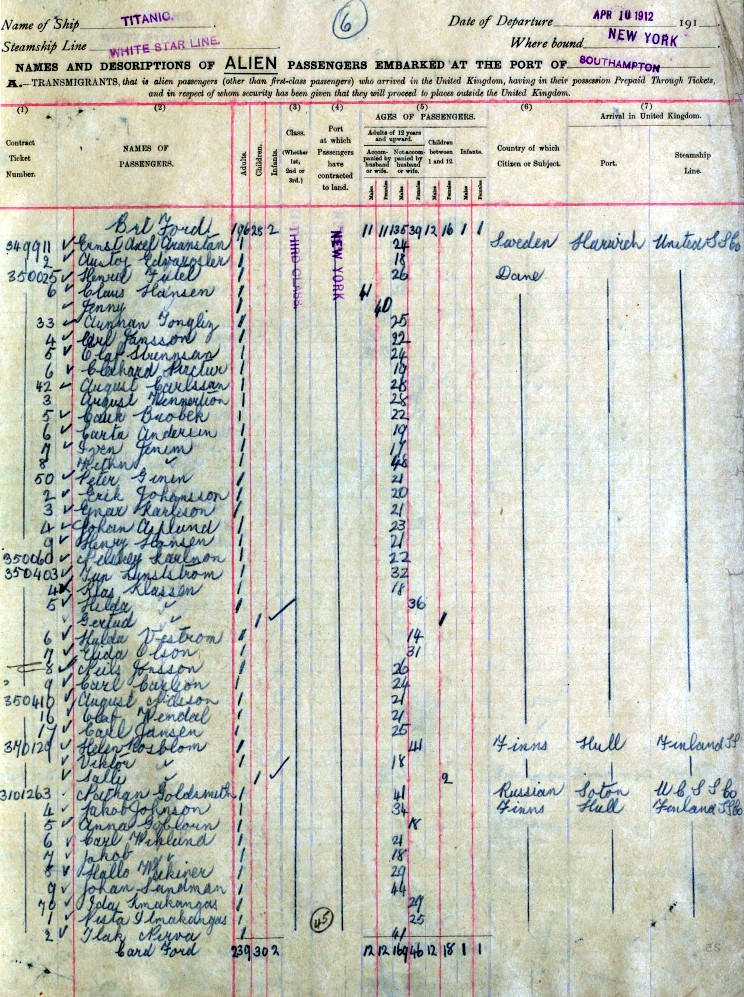 Name of Ship TITANIC. 6 Date of Departure APR 10 1912 191
Steamship Line WHITE STAR LINE. Where bound NEW YORK
NAMES AND DESCRIPTIONS OF ALIEN PASSENGERS EMBARKED AT THE PORT OF SOUTHAMPTON
A.—TRANSMIGRANTS, that is alien passengers (other than first-class passengers) who arrived in the United Kingdom, having in their possession Prepaid Through Tickets,
and in respect of whom security has been given that they will proceed to places outside the United Kingdom.
(1) (2) (3) (4) (5) (6) (7)
Contract Ticket Number. NAMES OF PASSENGERS. Adults. Children. Infants. Class. (Whether 1st, 2nd or 3rd.) Port at which Passengers have contracted to land. AGES OF PASSENGERS. Adults of 12 years and upward. Accompanied by husband or wife. Not accompanied by husband or wife. Children between 1 and 12. Infants. Males Females Males Females Males Females Males Females Country of which Citizen or Subject. Arrival in United Kingdom. Port. Steamship Line.
Brt Ford 196 28 2 11 11 135 39 12 16 1 1
THIRD CLASS NEW YORK
349911 Ernst Axel 1 24 Sweden Harwich United S S Co
2 1 18
350025 1 26 Dane
6 Claus Hansen 1 41
Jenny 1 40
33 1 25
4 Carl Jansson 1 22
5 1 24
6 1 19
42 August Carlssan 1 28
3 August 1 28
5 1 22
6 Carta Andersin 1 19
7 1 17
8 " 1 48
50 Peter 1 21
2 Erik Johansson 1 20
3 Einar Karlson 1 21
4 Johan Asplund 1 23
9 Henry Hansen 1 21
350060 1 22
350403 1 32
4 Klas Klassen 1 18
5 Hilda " 1 36
Gertud " 1 1
6 Hulda Vestrom 1 14
7 Elida Olson 1 31
8 Neils Jonsson 1 26
9 Carl Carlson 1 24
350410 August Nilsson 1 21
16 Olaf Wendal 1 21
17 Carl Jansen 1 25
370129 Helen Rosblom 1 41 Finns Hull Finland S S
Viktor " 1 18
Salli " 1 2
3101263 Nathan Goldsmith 1 41 Russian Soton U C S S Co
4 Jakob Johnson 1 34 Finns Hull Finland S S Co
5 Anna 1 18
6 Carl Wiklund 1 21
7 Jakob " 1 18
8 1 29
9 Johan Sandman 1 44
70 Ida Ilmakangas 1 27
1 Pista Ilmakangas 45 1 25
2 Isak Nirva 1 41
Card Ford 239 30 2 12 12 169 46 12 18 1 1